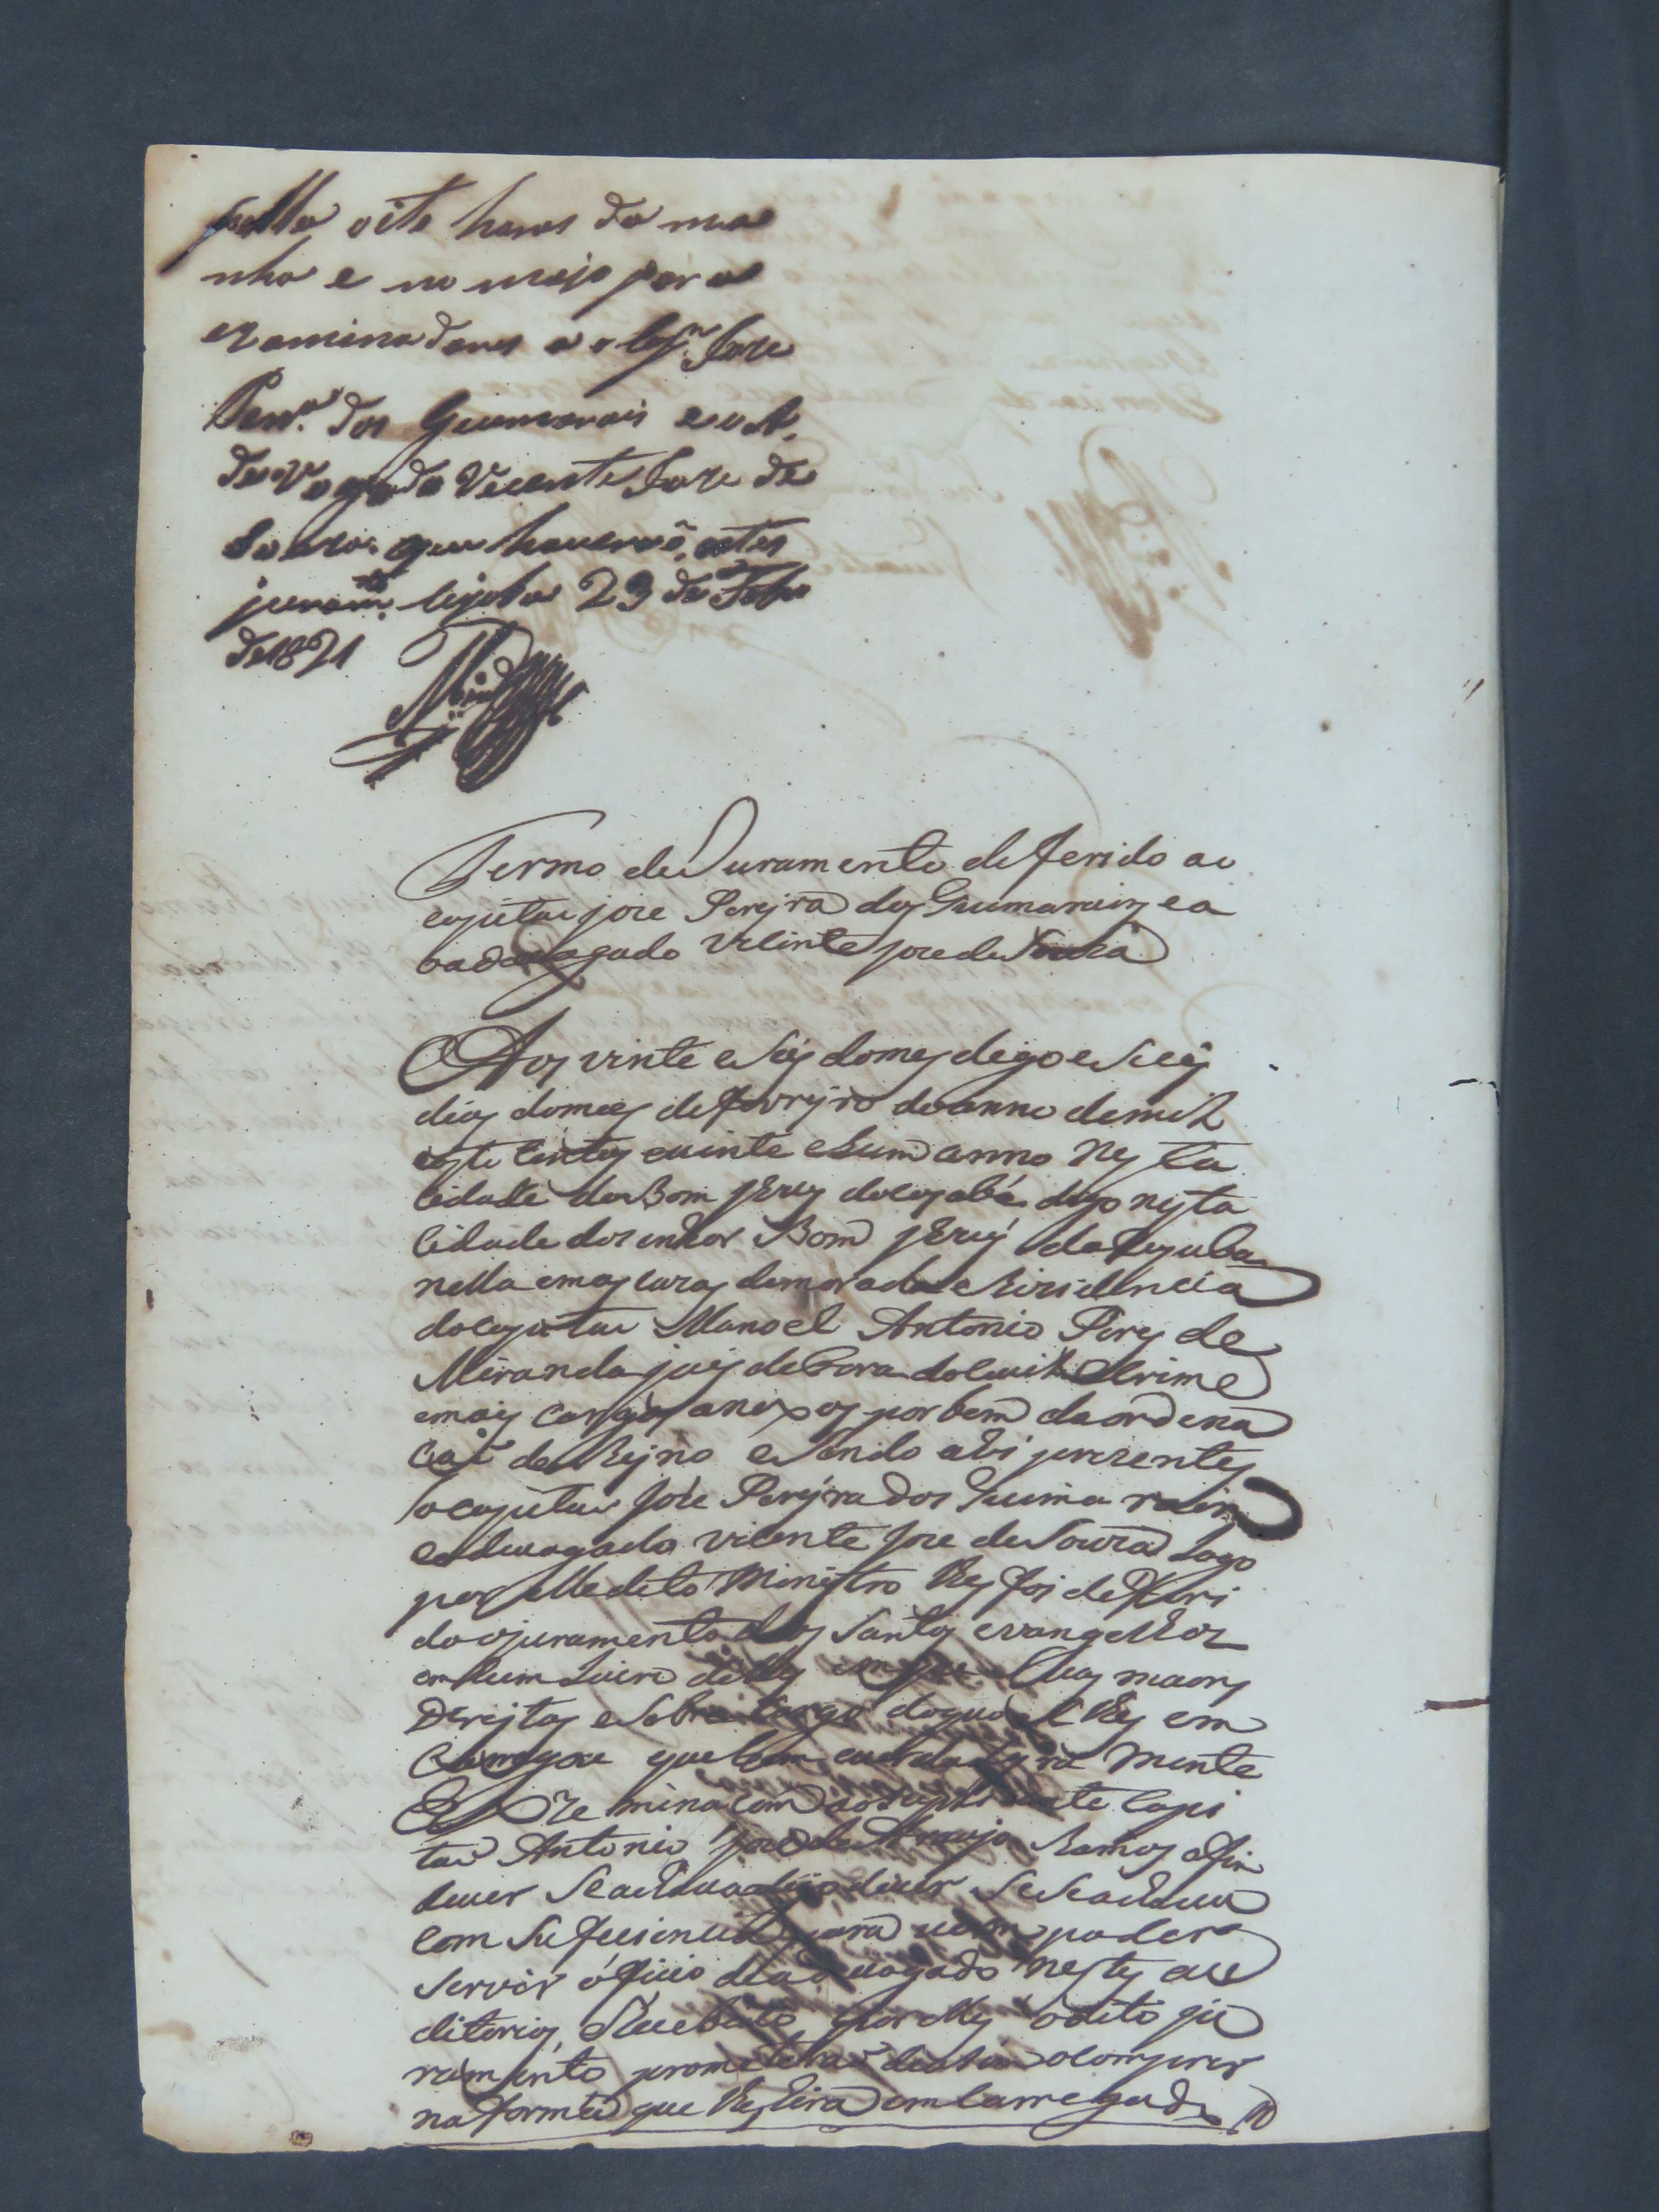 pella oito horas da ma
nha e no meio para
examinadores a o Cap.m Joze
Per.a dos Guimarais e o A,
devogado Vicente Joze de
Souza. que haveraõ, estes
juram.to Cujaba 23 de Febr.o
de 1821
Termo de Juramento deferido ao
capitaõ joze Perejra dos Guimarais e a
oadevogado Vicente joze de Souza
Aos vinte e seis do mes digo e seis
dias do mes de Fevrejro do anno de mil
oyto centos e vinte e hum anno Nesta
Cidade do Bom Jezus do Cojabá digo nesta
Cidade do Senhor Bom Jezus do Cujaba
nella em as cazas de morada e Rezidencia
do capitaõ Manoel Antonio Pires de
Miranda juis de Fora do Civil e Crime
e mais cargos anexos por bem da ordena
Caõ do Rejno e sendo ahi prezentes
o capitaõ Joze Perejra dos Guimarains
e advogado Vicente Joze de Souza Logo
por elle dito Ministro lhes foi deferi
do o juramento dos Santos evangelhos
em hum Livro delles em que suas maons
Derejtas e sobre cargo do qual lhes em
Carregou que bem e verdadejra mente
Exzeminacem ao suplicante Capi
taõ Antonio Joze de Araujo Ramos afin
de ver se achava digo de ver se se achava
com suficiencia para poder
servir oficio de advogado nestes au
ditorios, Recebido por elles o dito ju
ramento prometeraõ de asim o comprir
na forma que lhes hera emCarregado